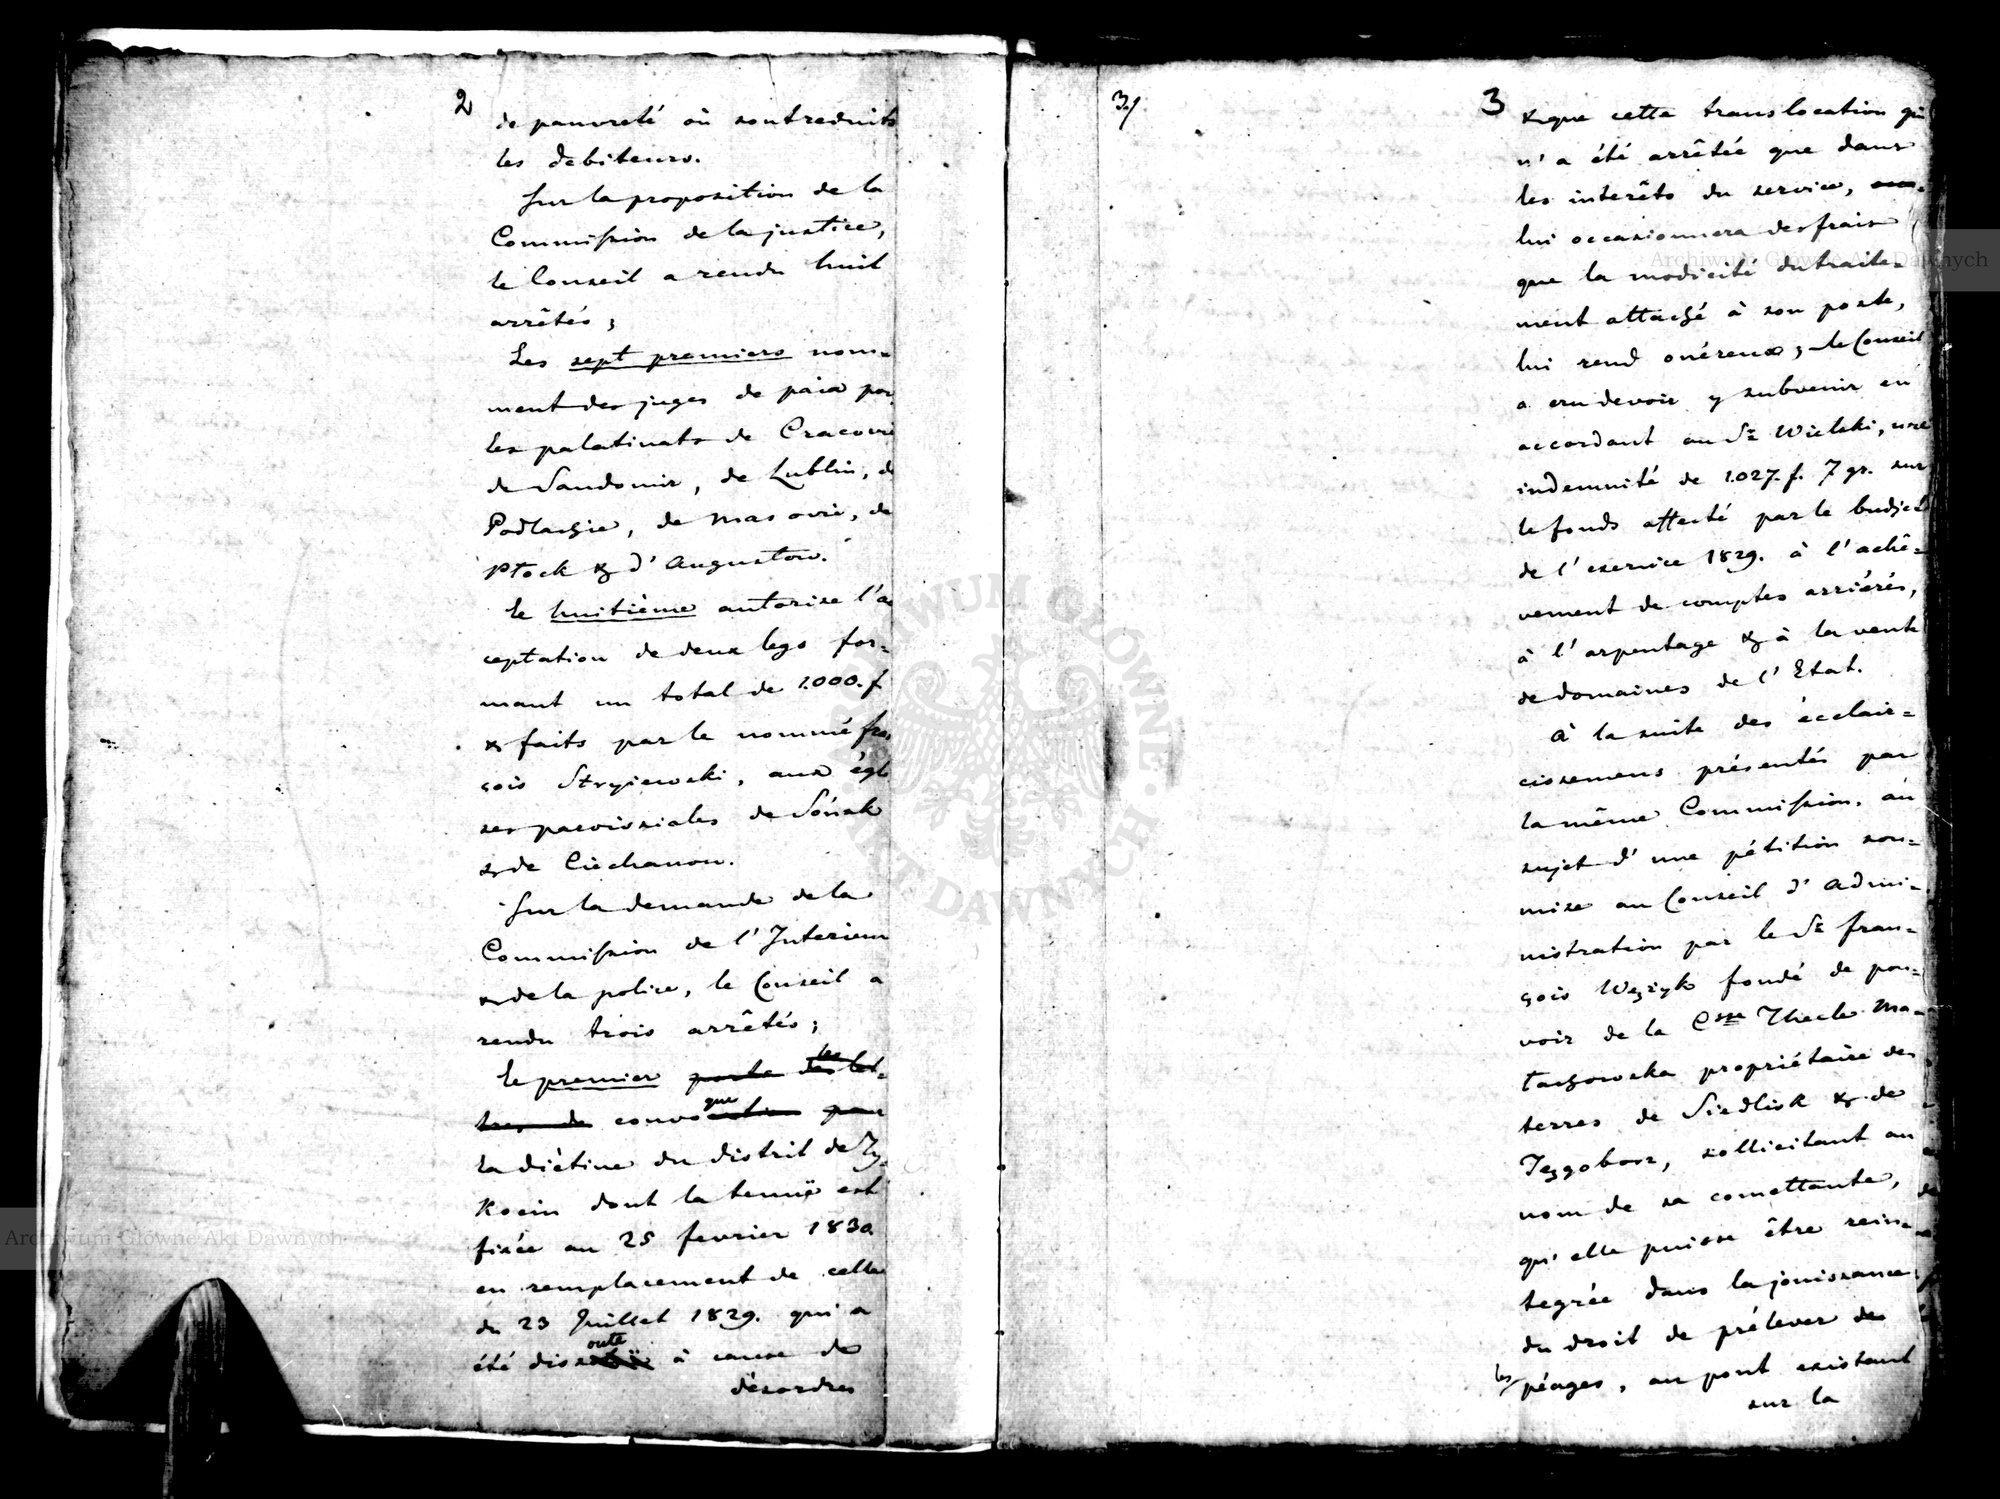 2
de pauvreté où sont reduits
les debiteurs.
Sur la proposition de la
Commission de la justice,
le Conseil a rendu huit
arrêtés;
Les sept premiers nom=
ment des juges de paix pour
les palatinats de Cracovie
de Sandomir, de Lublin, de
Podlachie, de Masovie, de
Płock & d'Augustow.
le huitième autorise l'ac
ceptation de deux legs for=
mant un total de 1.000. f
& faits par le nommé fran
çois Stryiewski, aux égli
ses paroissiales de Sońsk
& de Ciechanow.
Sur la demande de la
Commission de l'Interieur
& de la police, le Conseil a
rendu trois arrêtés;
le premier porte des les let=
tres de convocation que pour
la diétine du district de Ty=
kocin dont la tenue est
fixée au 25 fevrier 1830
en remplacement de celle
du 23 Juillet 1829. qui a
été dissoute à cause de
désordres
3./
3
& que cette translocation qui
n'a été arrêtée que dans
les interêts du service,
lui occasionnera des frais
que la modicité du traite=
ment attaché à son poste,
lui rend onéreux; le Conseil
a cru devoir y subvenir en
accordant au Sr Wielski, une
indemnité de 1.027. f. 7 gr. sur
le fonds affecté par le budjet
de l'exercice 1829. à l'achê=
vement de comptes arriérés,
à l'arpentage & à la vente
de domaines de l'Etat.
à la suite des écclair=
cissemens présentés par
la même Commission, au
sujet d'une pétition sou=
mise au Conseil d'Admi=
nistration par le Sr fran=
çois Węzyk fondé de pou=
voir de la Csse Thecle Ma=
łachowska propriétaire des
terres de Siedlisk & de
Tęgoborz, sollicitant au
nom de sa comettante,
qu'elle puisse être rein=
tegrée dans la jouissance
du droit de prélever de
les péages, au pont existant
sur la
Archiwum Główne Akt Dawnych
Archiwum Główne Akt Dawnych
ARCHIWUM GŁÓWNE · AKT DAWNYCH ·